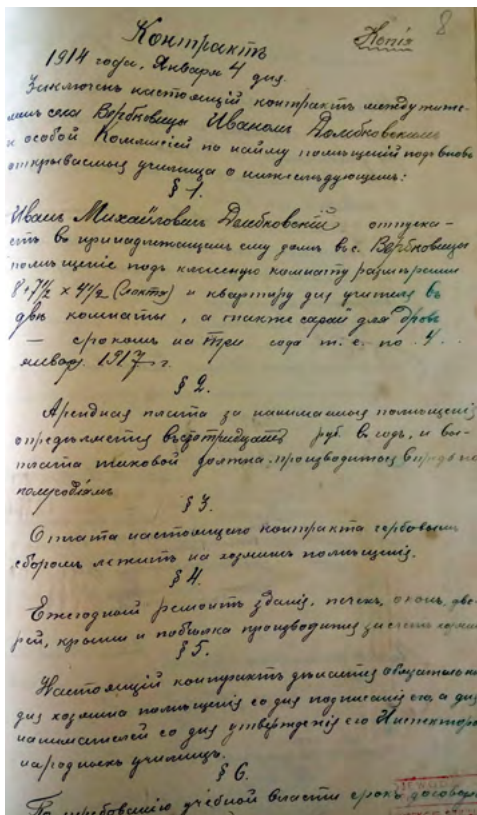 Копія 8
Контрактъ
1914 года, Января 4 дня.
Заключенъ настоящій контрактъ между жите-
лемъ села Вербковицы Иваномъ Домбковскимъ
и особой Коммисіей по найму помѣщеній подъ вновь
открываемыя училища о нижеслѣдующемъ:
§ 1.
Иванъ Михайловичъ Домбковскій отпуска-
етъ въ принадлежащемъ ему домѣ в с. Вербковицы
помѣщеніе подъ классную комнату размѣрами
8+7½ x 4½ (локтя) и квартиру для учителя въ
двѣ комнаты, а также сарай для дровъ
— срокомъ на три года т. е. по 4
январ. 1917 г.
§ 2.
Арендная плата за нанимаемыя помѣщенія
опредѣляется въ руб. въ годъ, и вы-
плата таковой должна производиться впредь по
полугодіямъ
§ 3.
Оплата настоящего контракта гербовымъ
сборомъ лежитъ на хозяинѣ помѣщенія.
§ 4.
Ежегодный ремонтъ зданія, печекъ, оконъ, две-
рей, крыши и побѣлка производится за счетъ
§ 5.
Настоящій контрактъ дѣлается обязательнымъ
для хозяина помѣщенія со дня подписанія его, а для
нанимателей со дня утвержденія его Инспекторомъ
народныхъ училищъ.
§ 6.
По требованію учебной власти срокъ договора